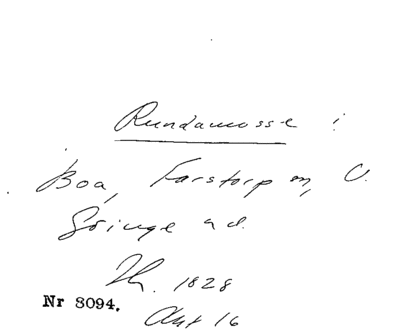 Rundamosse i
Boa, Farstorp sn, V.
Göinge hd.
Th. 1828
Nr 8094.
Akt 16